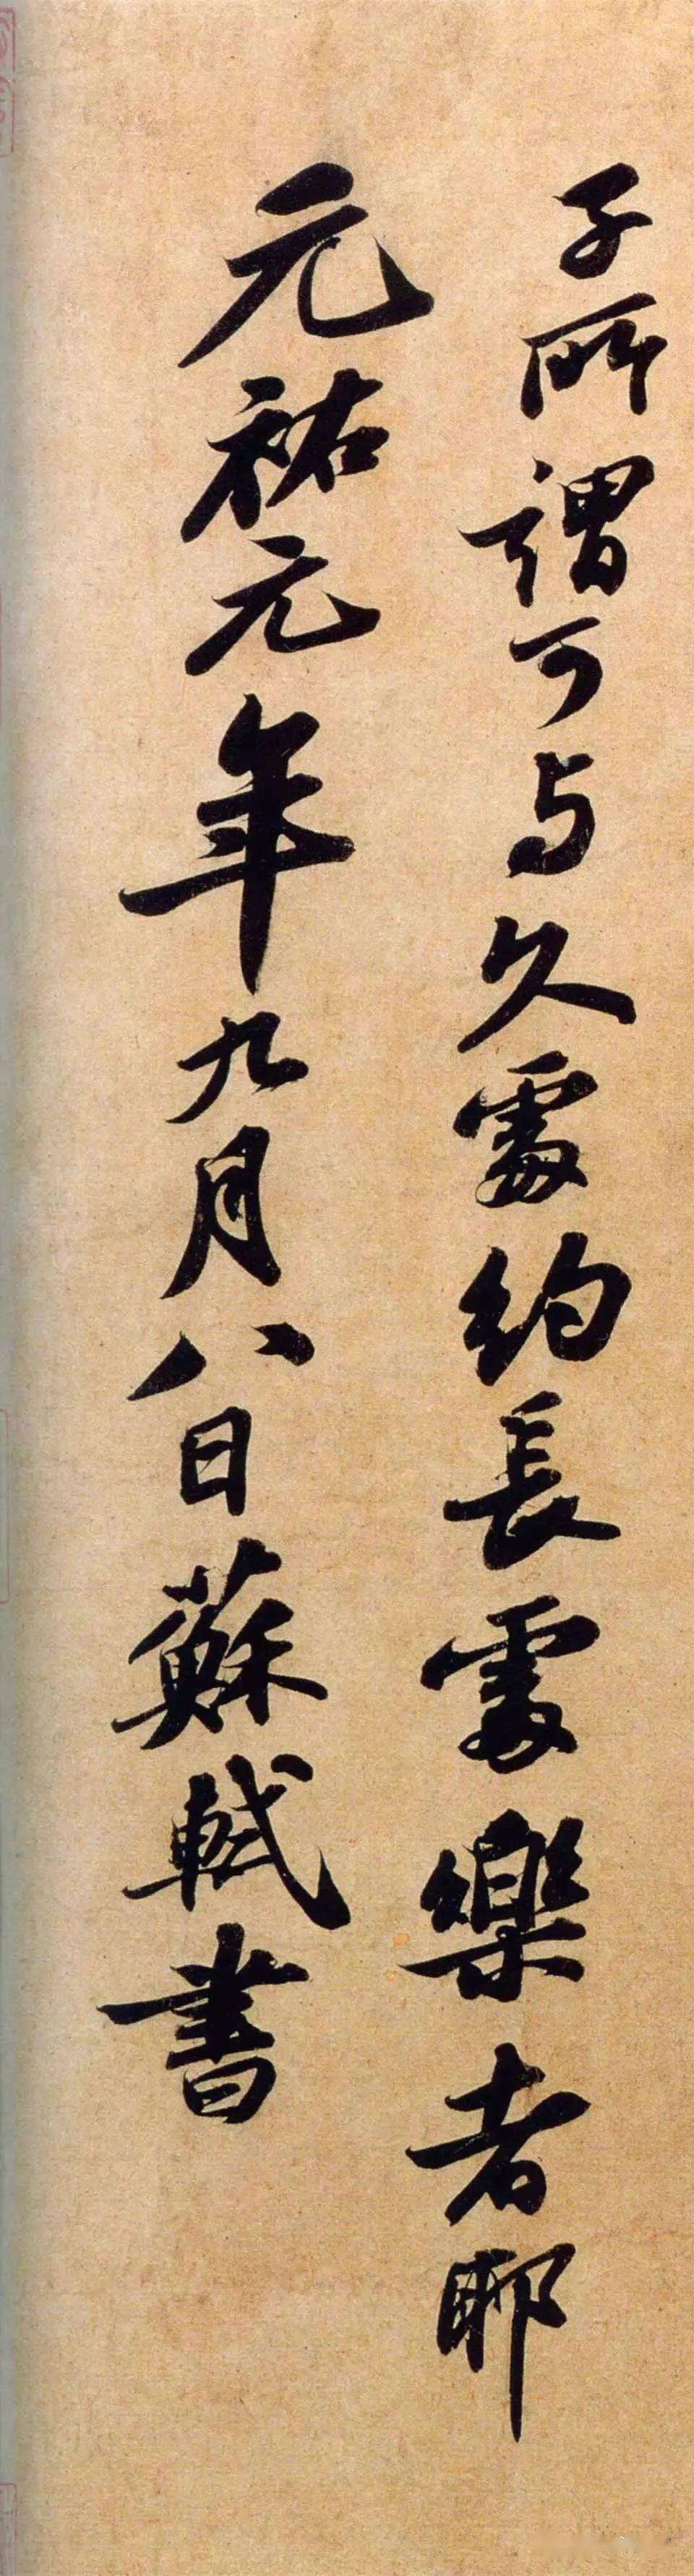 子所謂可与久處約長處樂者耶
元祐元年九月八日蘇軾書